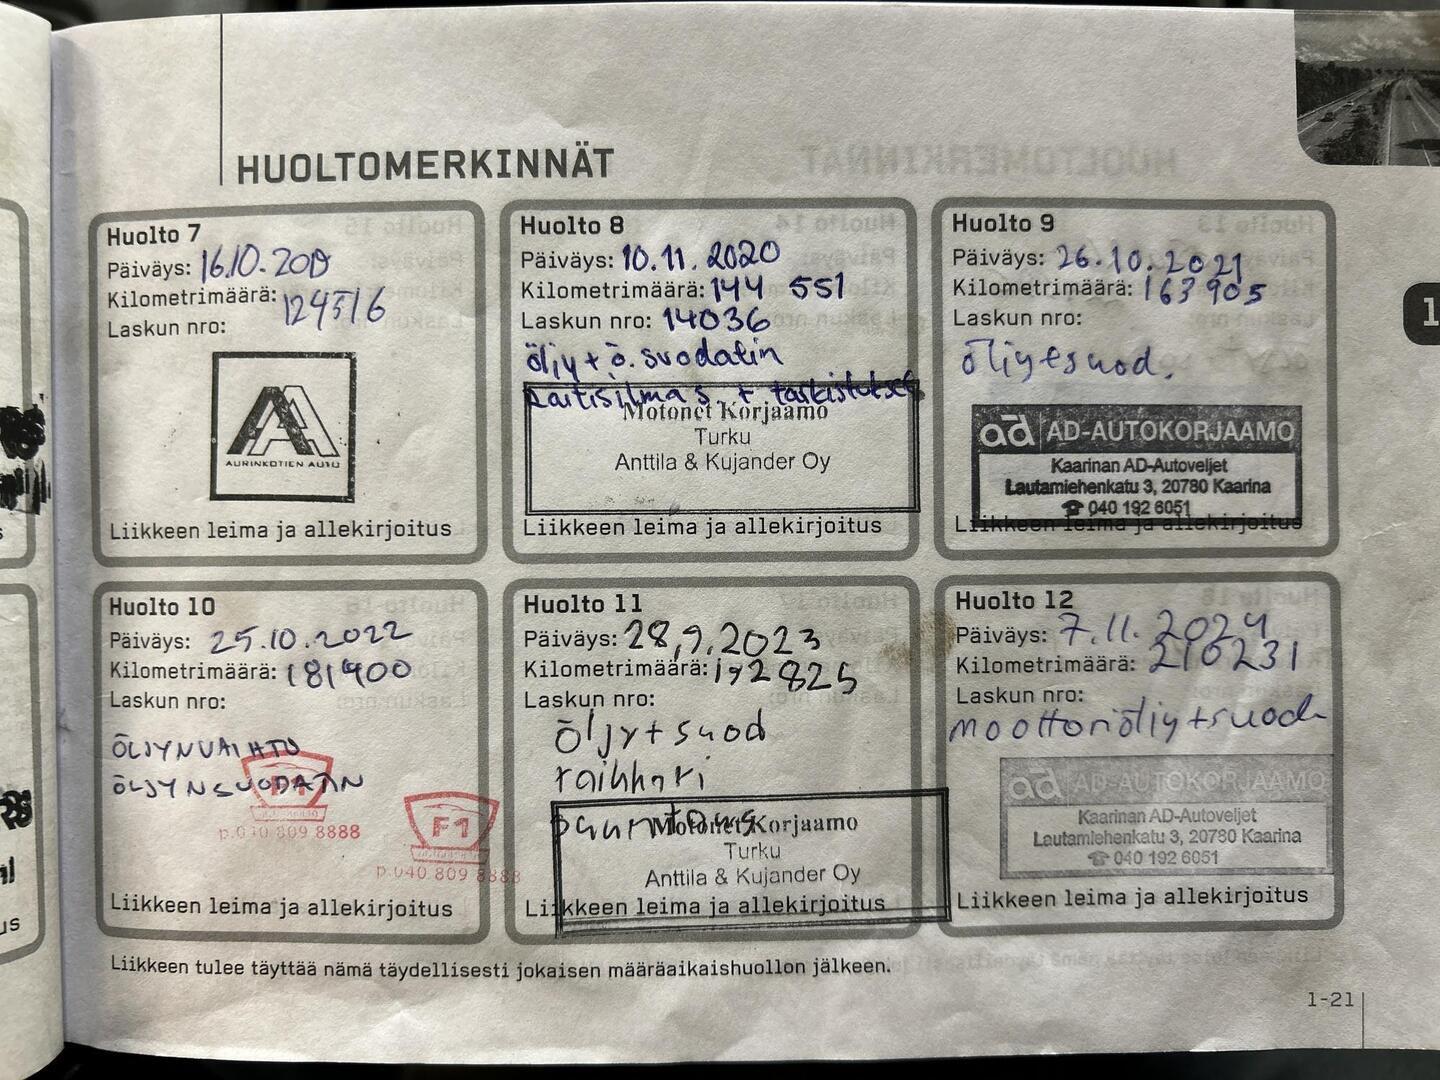 HUOLTOMERKINNÄT
Huolto 7
Päiväys: 16.10.2019
Kilometrimäärä: 124516
Laskun nro:
AURINKOTIEN AUTO
Liikkeen leima ja allekirjoitus
Huolto 8
Päiväys: 10.11.2020
Kilometrimäärä: 144 551
Laskun nro: 14036
öljy + ö.suodatin
raitisilma s. + tarkistukset
Motonet Korjaamo
Turku
Anttila & Kujander Oy
Liikkeen leima ja allekirjoitus
Huolto 9
Päiväys: 26.10.2021
Kilometrimäärä: 163905
Laskun nro:
öljy+suod.
ad AD-AUTOKORJAAMO
Kaarinan AD-Autoveljet
Lautamiehenkatu 3, 20780 Kaarina
☎ 040 192 6051
Liikkeen leima ja allekirjoitus
Huolto 10
Päiväys: 25.10.2022
Kilometrimäärä: 181400
Laskun nro:
ÖLJYNVAIHTO
ÖLJYNSUODATIN
F1
p.040 809 8888
F1
p.040 809 8888
Liikkeen leima ja allekirjoitus
Huolto 11
Päiväys: 28.9.2023
Kilometrimäärä: 192825
Laskun nro:
öljy+suod
raikkari
Motonet Korjaamo
Turku
Anttila & Kujander Oy
Liikkeen leima ja allekirjoitus
Huolto 12
Päiväys: 7.11.2024
Kilometrimäärä: 210231
Laskun nro:
moottoriöljy+suod
ad AD-AUTOKORJAAMO
Kaarinan AD-Autoveljet
Lautamiehenkatu 3, 20780 Kaarina
☎ 040 192 6051
Liikkeen leima ja allekirjoitus
Liikkeen tulee täyttää nämä täydellisesti jokaisen määräaikaishuollon jälkeen.
1-21
1